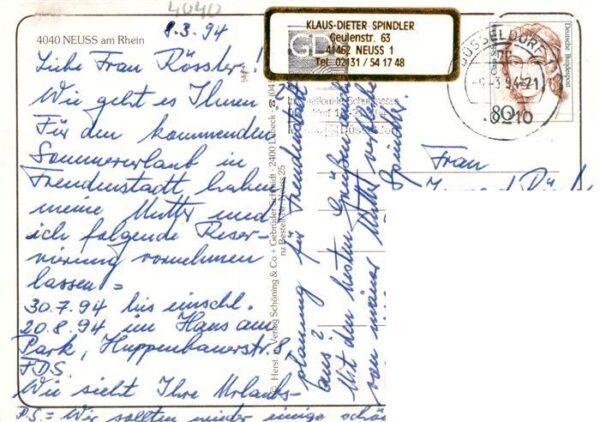 4040
8.3.94
4040 NEUSS am Rhein
Liebe Frau Rössler!
Wie geht es Ihnen?
Für den kommenden
Sommererlaub in
Freudenstadt, haben
meine Mutter und
ich folgende Reser-
vierung vornehmen
lassen =
30.7.94 bis einschl.
20.8.94 im Haus am
Park, Huppenbauerstr. 8
FDS.
Wie sieht Ihre Urlaubs-
planung für Freudenstadt
aus?
Mit den besten Grüßen auch
von meiner Mutter verbleibe
Spindler
P.S. = Wir sollten wieder einige
KLAUS-DIETER SPINDLER
Geulenstr. 63
41462 NEUSS 1
Tel. 02131 / 54 17 48
DÜSSELDORF 1
3.94-21
Deutsche Bundespost
80
4010
Frau
Herst. u. Verlag Schöning & Co + Gebrüder Schmidt · 2400 Lübeck